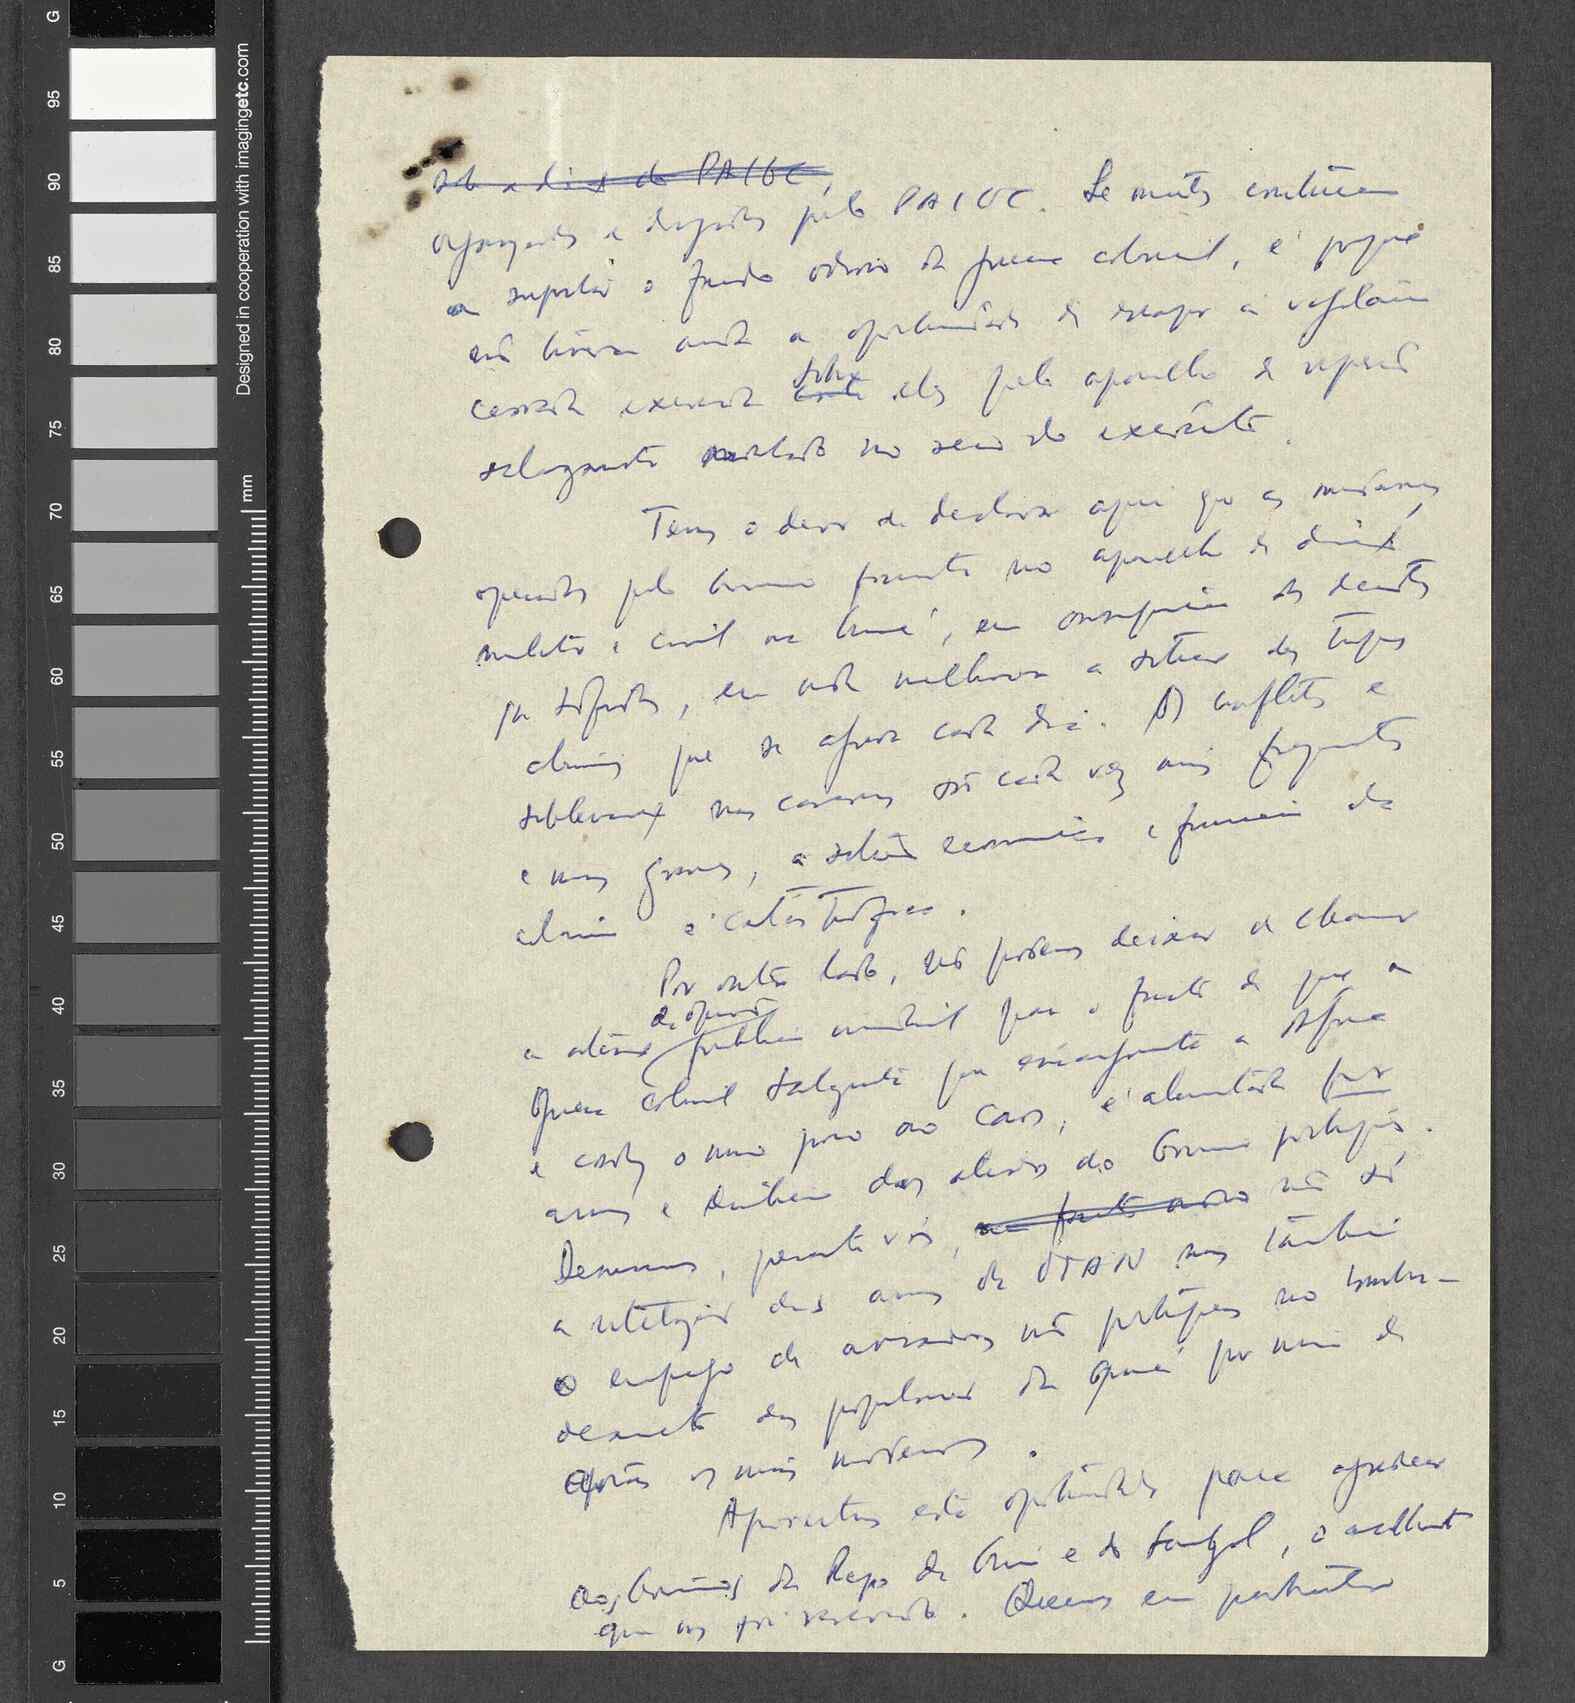 G
95
90
85
80
75
70
65
60
55
50
45
40
35
30
25
20
15
10
5
G
Designed in cooperation with imagingetc.com
mm
sob a do PAIGC,
e pelo PAIGC. Se muitos continuam
a suportar o fardo odioso da guerra colonial, é porque
não tiveram ainda a oportunidade de escapar à vigilância
cerrada exercida sobre eles pelo aparelho de repressão
salazarista no seio do exército.
Temos o dever de declarar aqui que as mudanças
operadas pelo Governo fascista no aparelho de
militar e civil na Guiné, em consequência das derrotas
por sofridas, em nada melhoram a situação das tropas
coloniais que se agrava cada dia. Os conflitos e
sublevações nas casernas são cada vez mais frequentes
e mais graves, a situação económica e financeira da
colónia é catastrófica.
Por outro lado, não podemos deixar de chamar
de opinião
a atenção pública mundial para o facto de que a
guerra colonial salazarista a África
e contra o nosso povo no caso, é alimentada por
armas e dos aliados do Governo português.
Denunciamos, perante vós, não só
a utilização das armas da OTAN mas também
o emprego de não portugueses no bombar-
deamento das populações da Guiné por meio de
os mais modernos.
Aproveitamos esta oportunidade para agradecer
aos Governos da Repa da Guiné e do Senegal, o acolhimento
que nos foi reservado. Queremos em particular